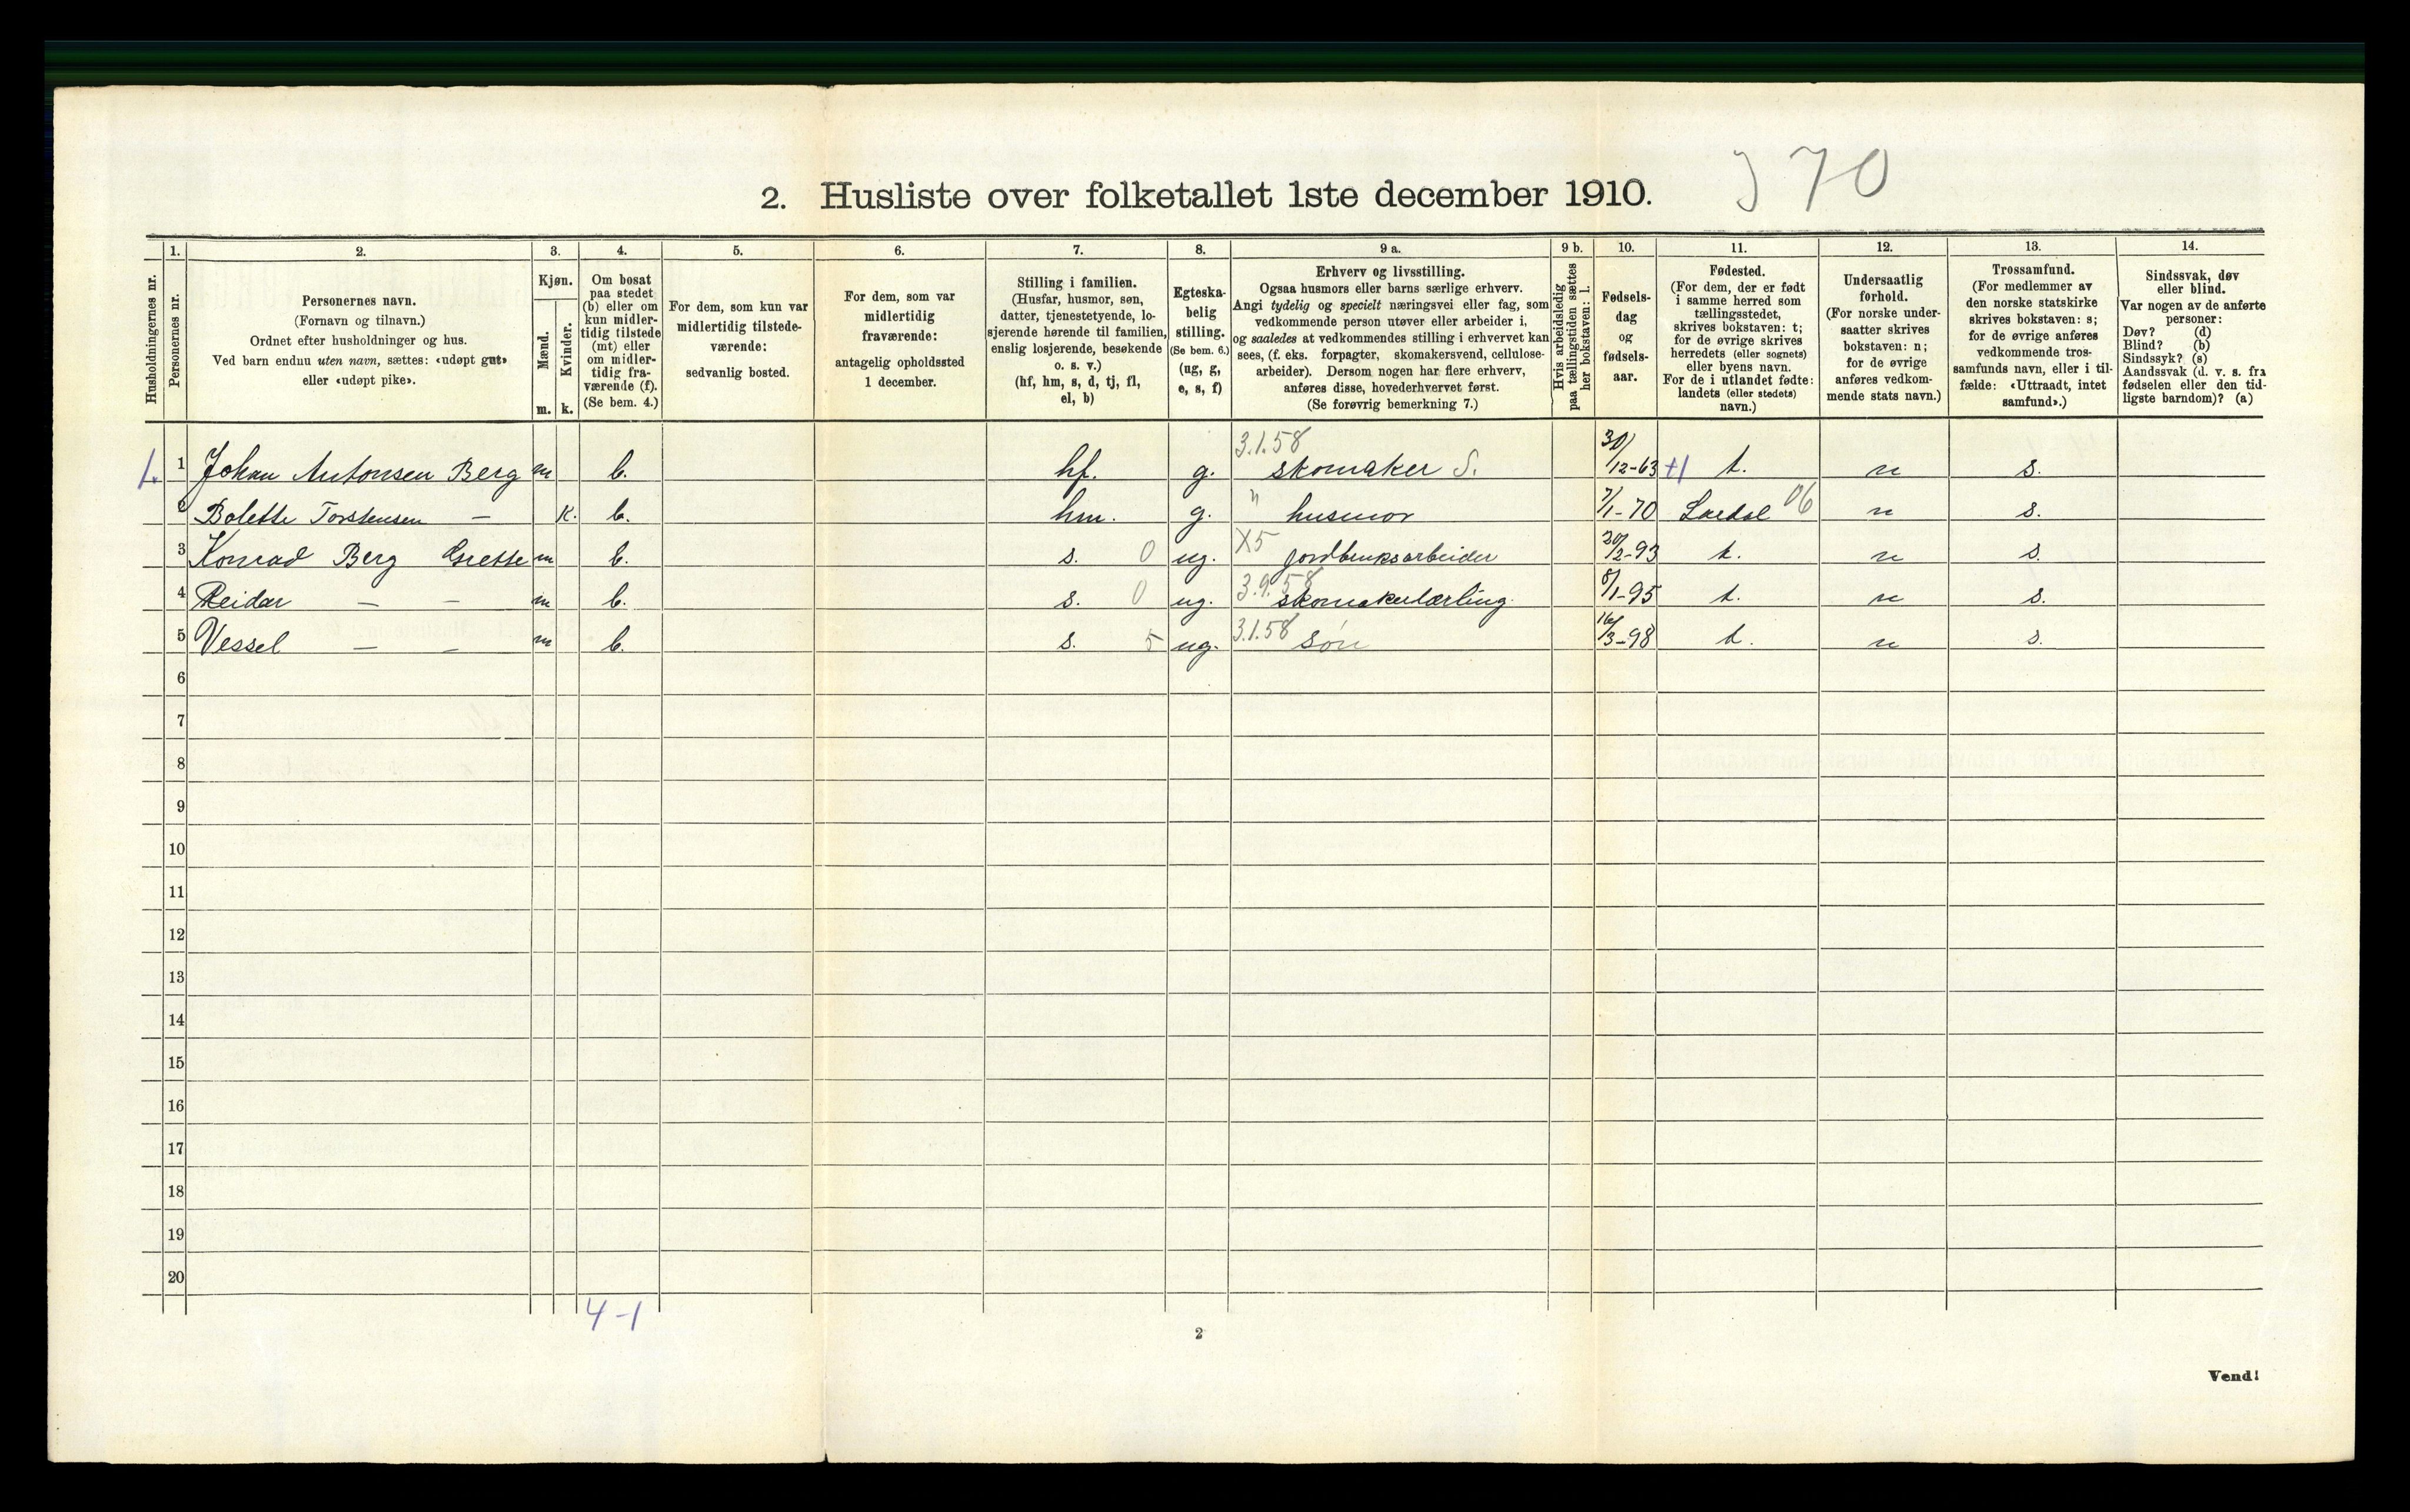 J 70
2. Husliste over folketallet 1ste december 1910.
Husholdningernes nr.
1. Personernes nr.
2. Personernes navn. (Fornavn og tilnavn.) Ordnet efter husholdninger og hus. Ved barn endnu uten navn, sættes: «udøpt gut» eller «udøpt pike».
3. Kjøn. Mænd. m. Kvinder. k.
4. Om bosat paa stedet (b) eller om kun midlertidig tilstede (mt) eller om midlertidig fraværende (f). (Se bem. 4.)
5. For dem, som kun var midlertidig tilstedeværende: sedvanlig bosted.
6. For dem, som var midlertidig fraværende: antagelig opholdssted 1 december.
7. Stilling i familien. (Husfar, husmor, søn, datter, tjenestetyende, losjerende hørende til familien, enslig losjerende, besøkende o. s. v.) (hf, hm, s, d, tj, fl, el, b)
8. Egteskabelig stilling. (Se bem. 6.) (ug, g, e, s, f)
9 a. Erhverv og livsstilling. Ogsaa husmors eller barns særlige erhverv. Angi tydelig og specielt næringsvei eller fag, som vedkommende person utøver eller arbeider i, og saaledes at vedkommendes stilling i erhvervet kan sees, (f. eks. forpagter, skomakersvend, cellulosearbeider). Dersom nogen har flere erhverv, anføres disse, hovederhvervet først. (Se forøvrig bemerkning 7.)
9 b. Hvis arbeidsledig paa tællingstiden sættes her bokstaven: l.
10. Fødselsdag og fødselsaar.
11. Fødested. (For dem, der er født i samme herred som tællingsstedet, skrives bokstaven: t; for de øvrige skrives herredets (eller sognets) eller byens navn. For de i utlandet fødte: landets (eller stedets) navn.)
12. Undersaatlig forhold. (For norske undersaatter skrives bokstaven: n; for de øvrige anføres vedkommende stats navn.)
13. Trossamfund. (For medlemmer av den norske statskirke skrives bokstaven: s; for de øvrige anføres vedkommende trossamfunds navn, eller i tilfælde: «Uttraadt, intet samfund».)
14. Sindssvak, døv eller blind. Var nogen av de anførte personer: Døv? (d) Blind? (b) Sindssyk? (s) Aandssvak (d. v. s. fra fødselen eller den tidligste barndom)? (a)
1. 1 Johan Antonsen Berg m b. hf. g. 3.1.58 skomaker S. 30/12-63 +1 t. n s.
2 Bolette Torstensen — k. b. hm. g. " husmor 7/1-70 Lærdal 06 n s.
3 Konrad Berg Grette m b. s. 0 ug. X5 jordbruksarbeider 20/2-93 t. n s.
4 Reidar — — m b. s. 0 ug. 3.9.58 skomakerlærling. 8/1-95 t. n s.
5 Vessel — — m b. s. 5 ug. 3.1.58 søn 16/3-98 t. n s.
6
7
8
9
10
11
12
13
14
15
16
17
18
19
20
4-1
2
Vend!